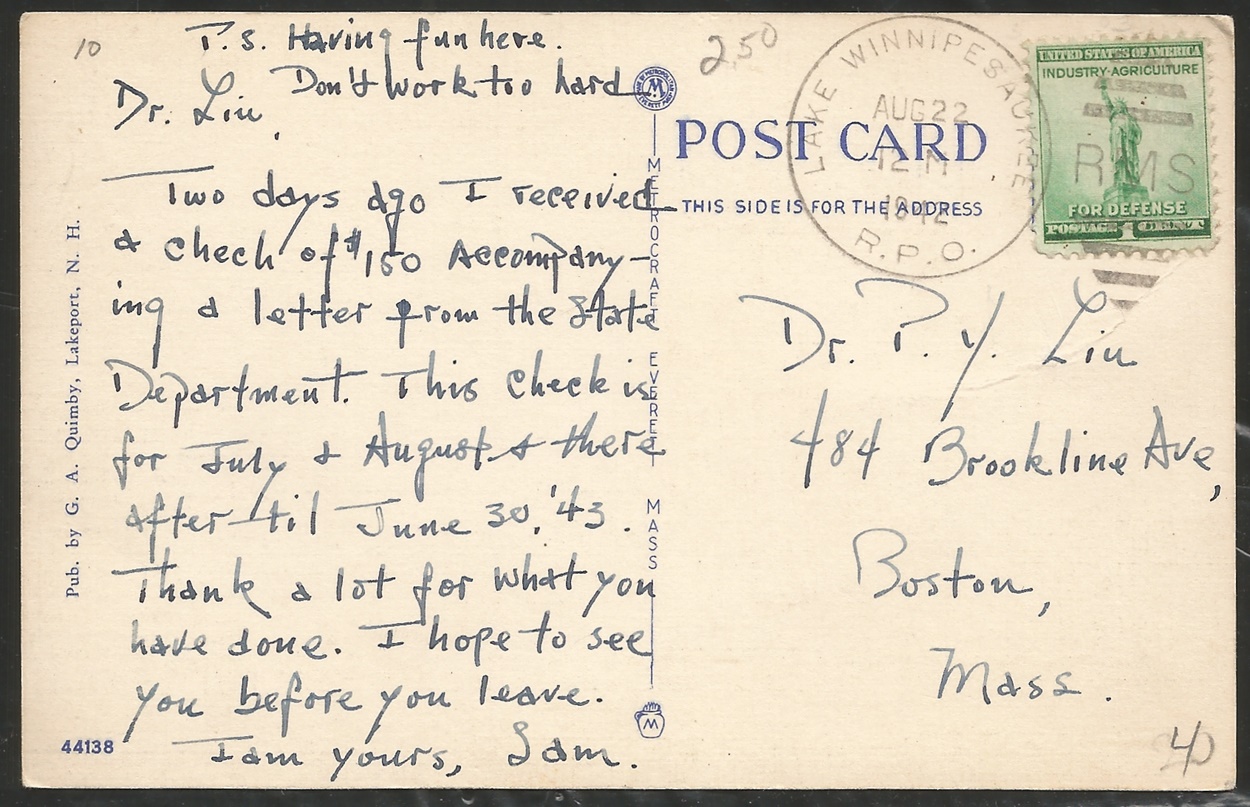 10
P.S. Having fun here.
Don't work too hard
Dr. Liu,
Two days ago I received
a check of $150 Accompany-
ing a letter from the State
Department. This check is
for July & August & there
after til June 30, '43.
Thank a lot for what you
have done. I hope to see
you before you leave.
I am yours, Sam.
Pub. by G. A. Quimby, Lakeport, N. H.
44138
M
METROCRAFT EVERETT MASS
M
2.50
POST CARD
THIS SIDE IS FOR THE ADDRESS
LAKE WINNIPESAUKEE
AUG 22
12 M
1942
R.P.O.
UNITED STATES OF AMERICA
INDUSTRY·AGRICULTURE
RMS
FOR DEFENSE
POSTAGE 1 CENT
Dr. P. Y. Liu
484 Brookline Ave,
Boston,
Mass.